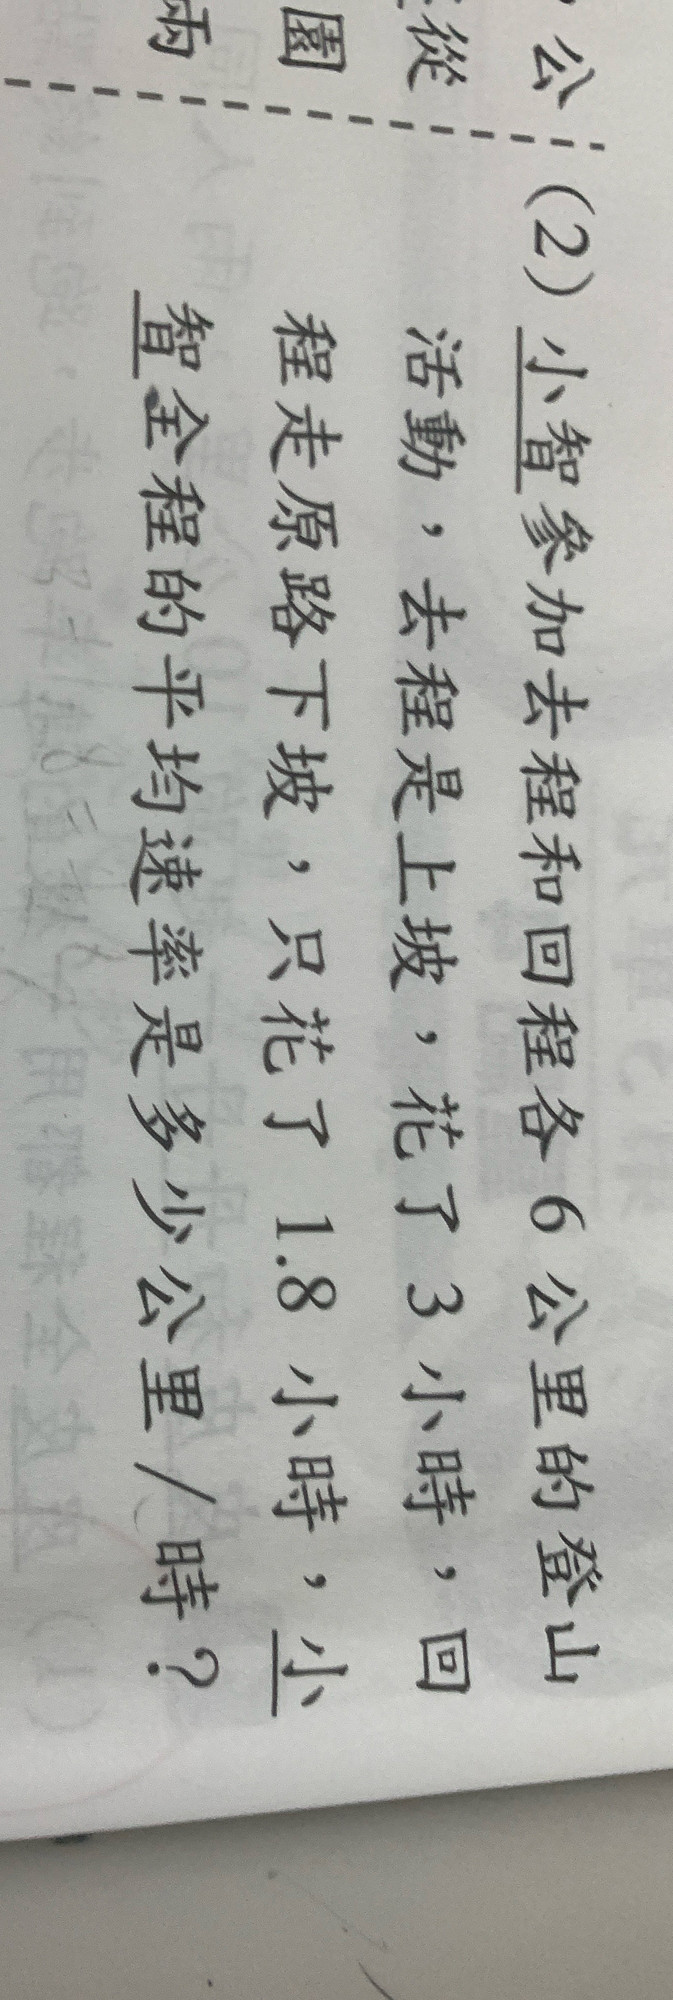 公
從
園
兩
(2) 小智參加去程和回程各 6 公里的登山
活動，去程是上坡，花了 3 小時，回
程走原路下坡，只花了 1.8 小時，小
智全程的平均速率是多少公里／時？